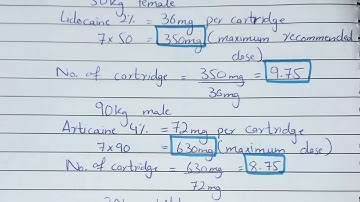 50kg female
Lidocaine 2% = 36mg per cartridge
7x50 = 350mg (maximum recommended
dose)
No. of cartridge = 350mg = 9.75
36mg
90kg male
Articaine 4% = 72mg per cartridge
7x90 = 630mg (maximum dose)
No. of cartridge = 630mg = 8.75
72mg